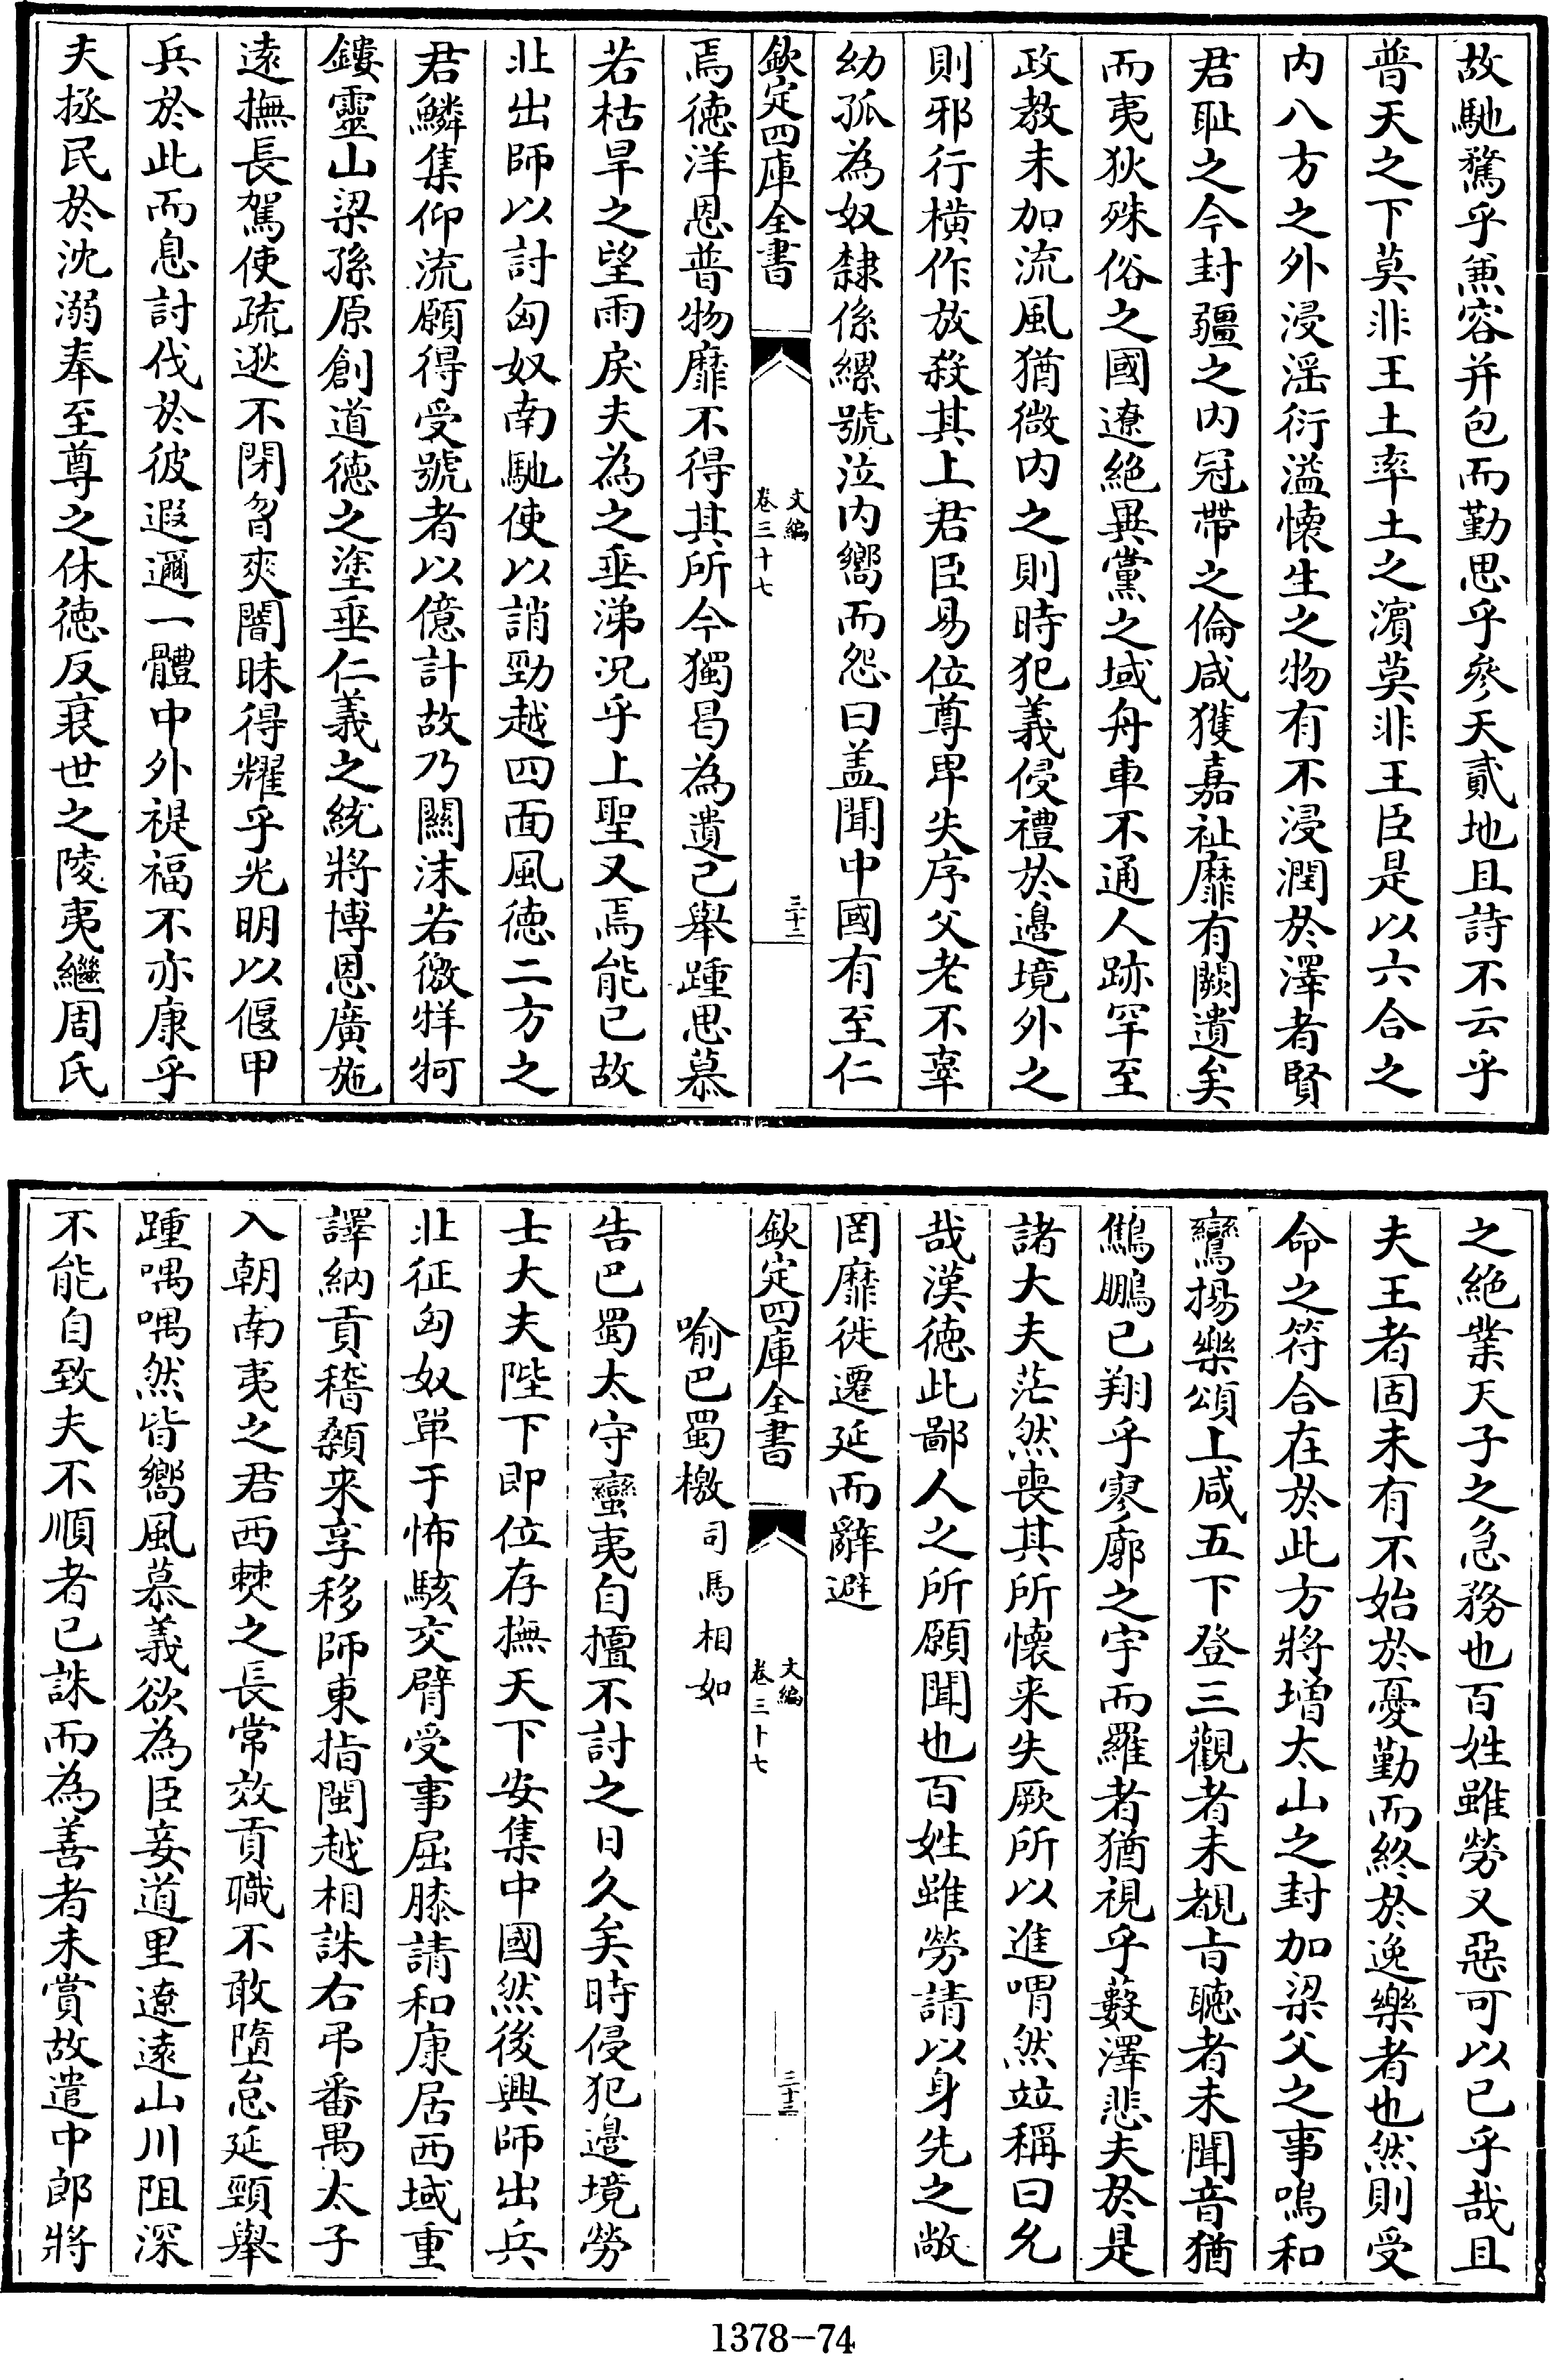 故馳騖乎兼容并包而勤思乎參天貳地且詩不云乎
普天之下莫非王土率土之濱莫非王臣是以六合之
内八方之外浸淫衍溢懷生之物有不浸潤於澤者賢
君恥之今封疆之内冠帶之倫咸獲嘉祉靡有闕遺矣
而夷狄殊俗之國遼絶異黨之域舟車不通人跡罕至
政教未加流風猶微内之則時犯義侵禮於邊境外之
則邪行横作放殺其上君臣易位尊卑失序父老不辜
幼孤為奴隸係縲號泣内嚮而怨曰盖聞中國有至仁
欽定四庫全書
文編
卷三十七
三十二
焉徳洋恩普物靡不得其所今獨曷為遺已舉踵思慕
若枯旱之望雨戾夫為之垂涕況乎上聖又焉能已故
北出師以討匈奴南馳使以誚勁越四面風徳二方之
君鱗集仰流願得受號者以億計故乃關沫若徼牂牁
鏤靈山梁孫原創道徳之塗垂仁義之統將博恩廣施
逺撫長駕使疏逖不閉曶爽闇昧得耀乎光明以偃甲
兵於此而息討伐於彼遐邇一體中外禔福不亦康乎
夫拯民於沈溺奉至尊之休徳反衰世之陵夷繼周氏
之絶業天子之急務也百姓雖勞又惡可以已乎哉且
夫王者固未有不始於憂勤而終於逸樂者也然則受
命之符合在於此方將增太山之封加梁父之事鳴和
鸞揚樂頌上咸五下登三觀者未覩㫖聽者未聞音猶
鷦鵬已翔乎寥廓之宇而羅者猶視乎藪澤悲夫於是
諸大夫茫然喪其所懷来失厥所以進喟然竝稱曰允
哉漢徳此鄙人之所願聞也百姓雖勞請以身先之敞
罔靡徙遷延而辭避
欽定四庫全書
文編
卷三十七
三十三
喻巴蜀檄司馬相如
告巴蜀太守蠻夷自擅不討之日久矣時侵犯邊境勞
士大夫陛下即位存撫天下安集中國然後興師出兵
北征匈奴單于怖駭交臂受事屈膝請和康居西域重
譯納貢稽顙来享移師東指閩越相誅右弔番禺太子
入朝南夷之君西僰之長常效貢職不敢墮怠延頸舉
踵喁喁然皆嚮風慕義欲為臣妾道里遼逺山川阻深
不能自致夫不順者已誅而為善者未賞故遣中郎將
1378-74